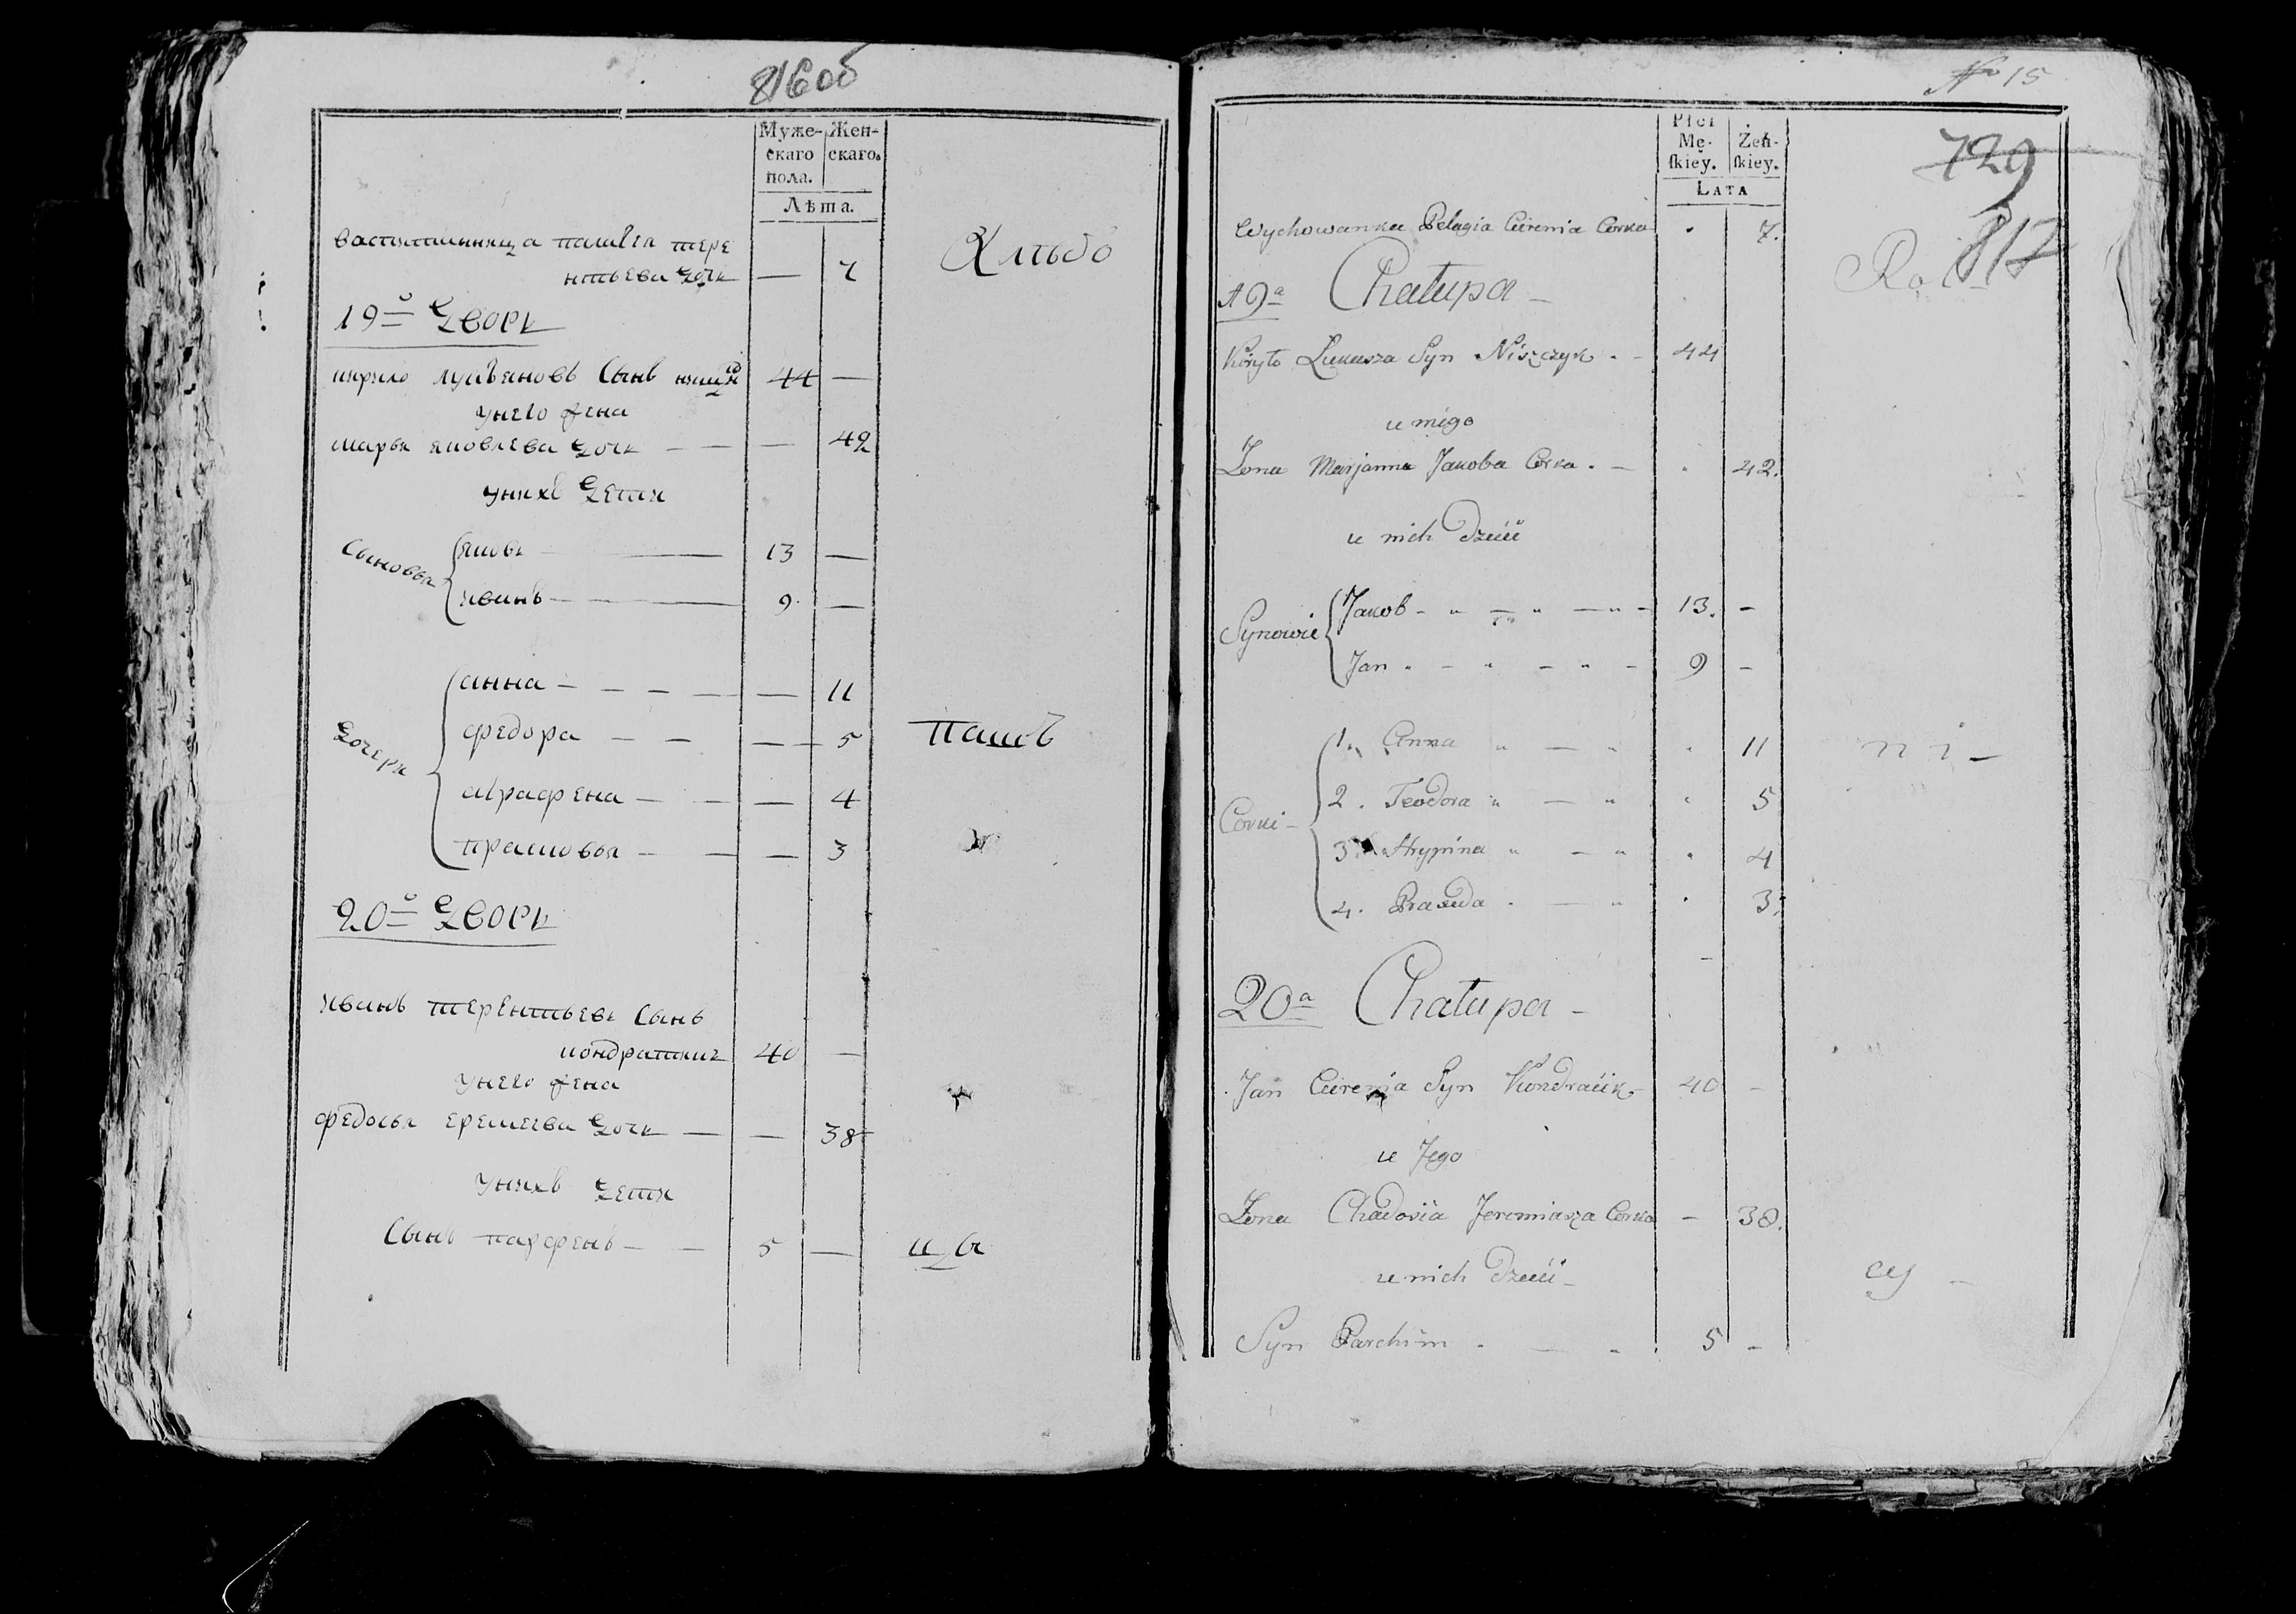 816об
Муже- Жен-
скаго скаго.
пола.
Лѣта.
пелагея тере
нтьева дочь — 7
19й дворъ
кирило лукьяновъ сынъ 44 —
унего жена
марья яковлева дочь — 42
унихъ дети
сыновья яковъ 13 —
иванъ 9 —
дочери анна — 11
федора — 5
аграфена — 4
прасковья — 3
20й дворъ
иванъ терентьевъ сынъ
кондратчикъ 40 —
унего жена
федосья еремеева дочь — 38
унихъ дети
сынъ парфенъ 5 —
No 15
Płci
Mę- Żeń-
ſkiey. ſkiey.
LATA
729
817
Wychowanka Pelagia Cirenia Corka 7.
19a Chałupa
Kiryło Łukasza Syn Niszczyk 44
u niego
Zona Marjanna Jakoba Corka 42.
u nich Dzieci
Synowie Jakob 13. -
Jan 9 -
Corki 1. Anna 11
2. Teodora 5
3. Ahrypina 4
4. Praxeda 3.
20a Chałupa
Jan Cirenia Syn Kondracik 40 -
u Jego
Zona Chadosia Jeremiasza Corka - 38.
u nich Dzieci
Syn Parchim 5 -